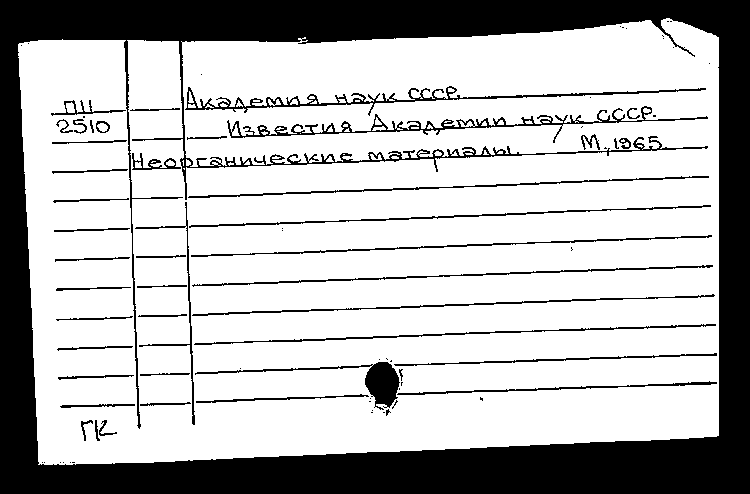 Академия наук СССР.
П11
2510 Известия Академии наук СССР.
Неорганические материалы. М., 1965.
ГК